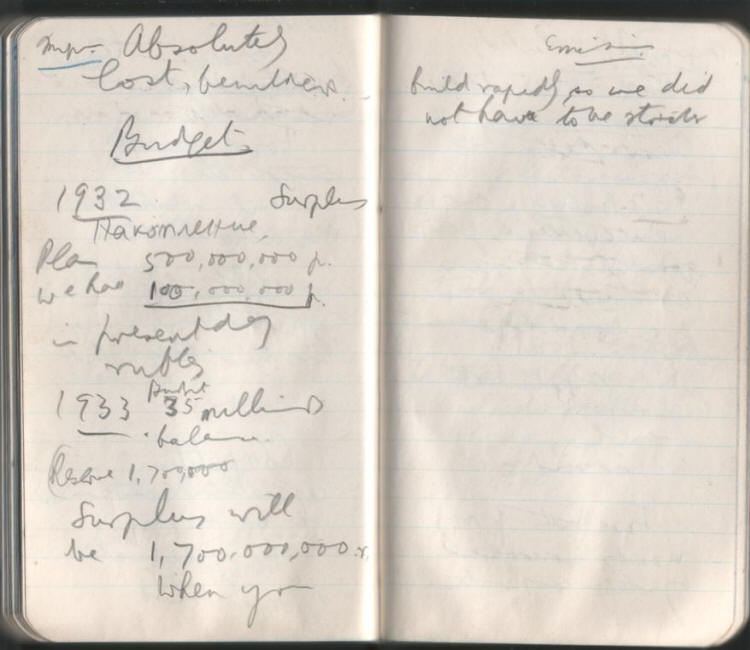 Absolutely
lost,
Budget
1932 Surplus
Накопление
Plan 500,000,000 р.
we had 100,000,000 р.
in present day
rubles
1933 Budget 35 milliards
balance
(Reserve 1,700,000
Surplus will
be 1,700,000,000 r.
When you
build rapidly so we did
not have to be